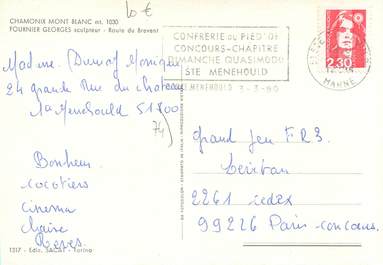 CHAMONIX MONT BLANC mt. 1030
FOURNIER GEORGES sculpteur - Route du Brevent
10 €
CONFRERIE DU PIED DE
CONCOURS-CHAPITRE
DIMANCHE QUASIMODO
STE MENEHOULD
MENEHOULD 3-3-90
MARNE
2,30
Madme Monique
24 grande Rue du chateau
Menehould 51800
Bonheur
cocotiers
cinema
Reves
grand Jeu FR3
2261 cedex
99226 Paris-concours
1217 - Ediz. SACAT - Torino